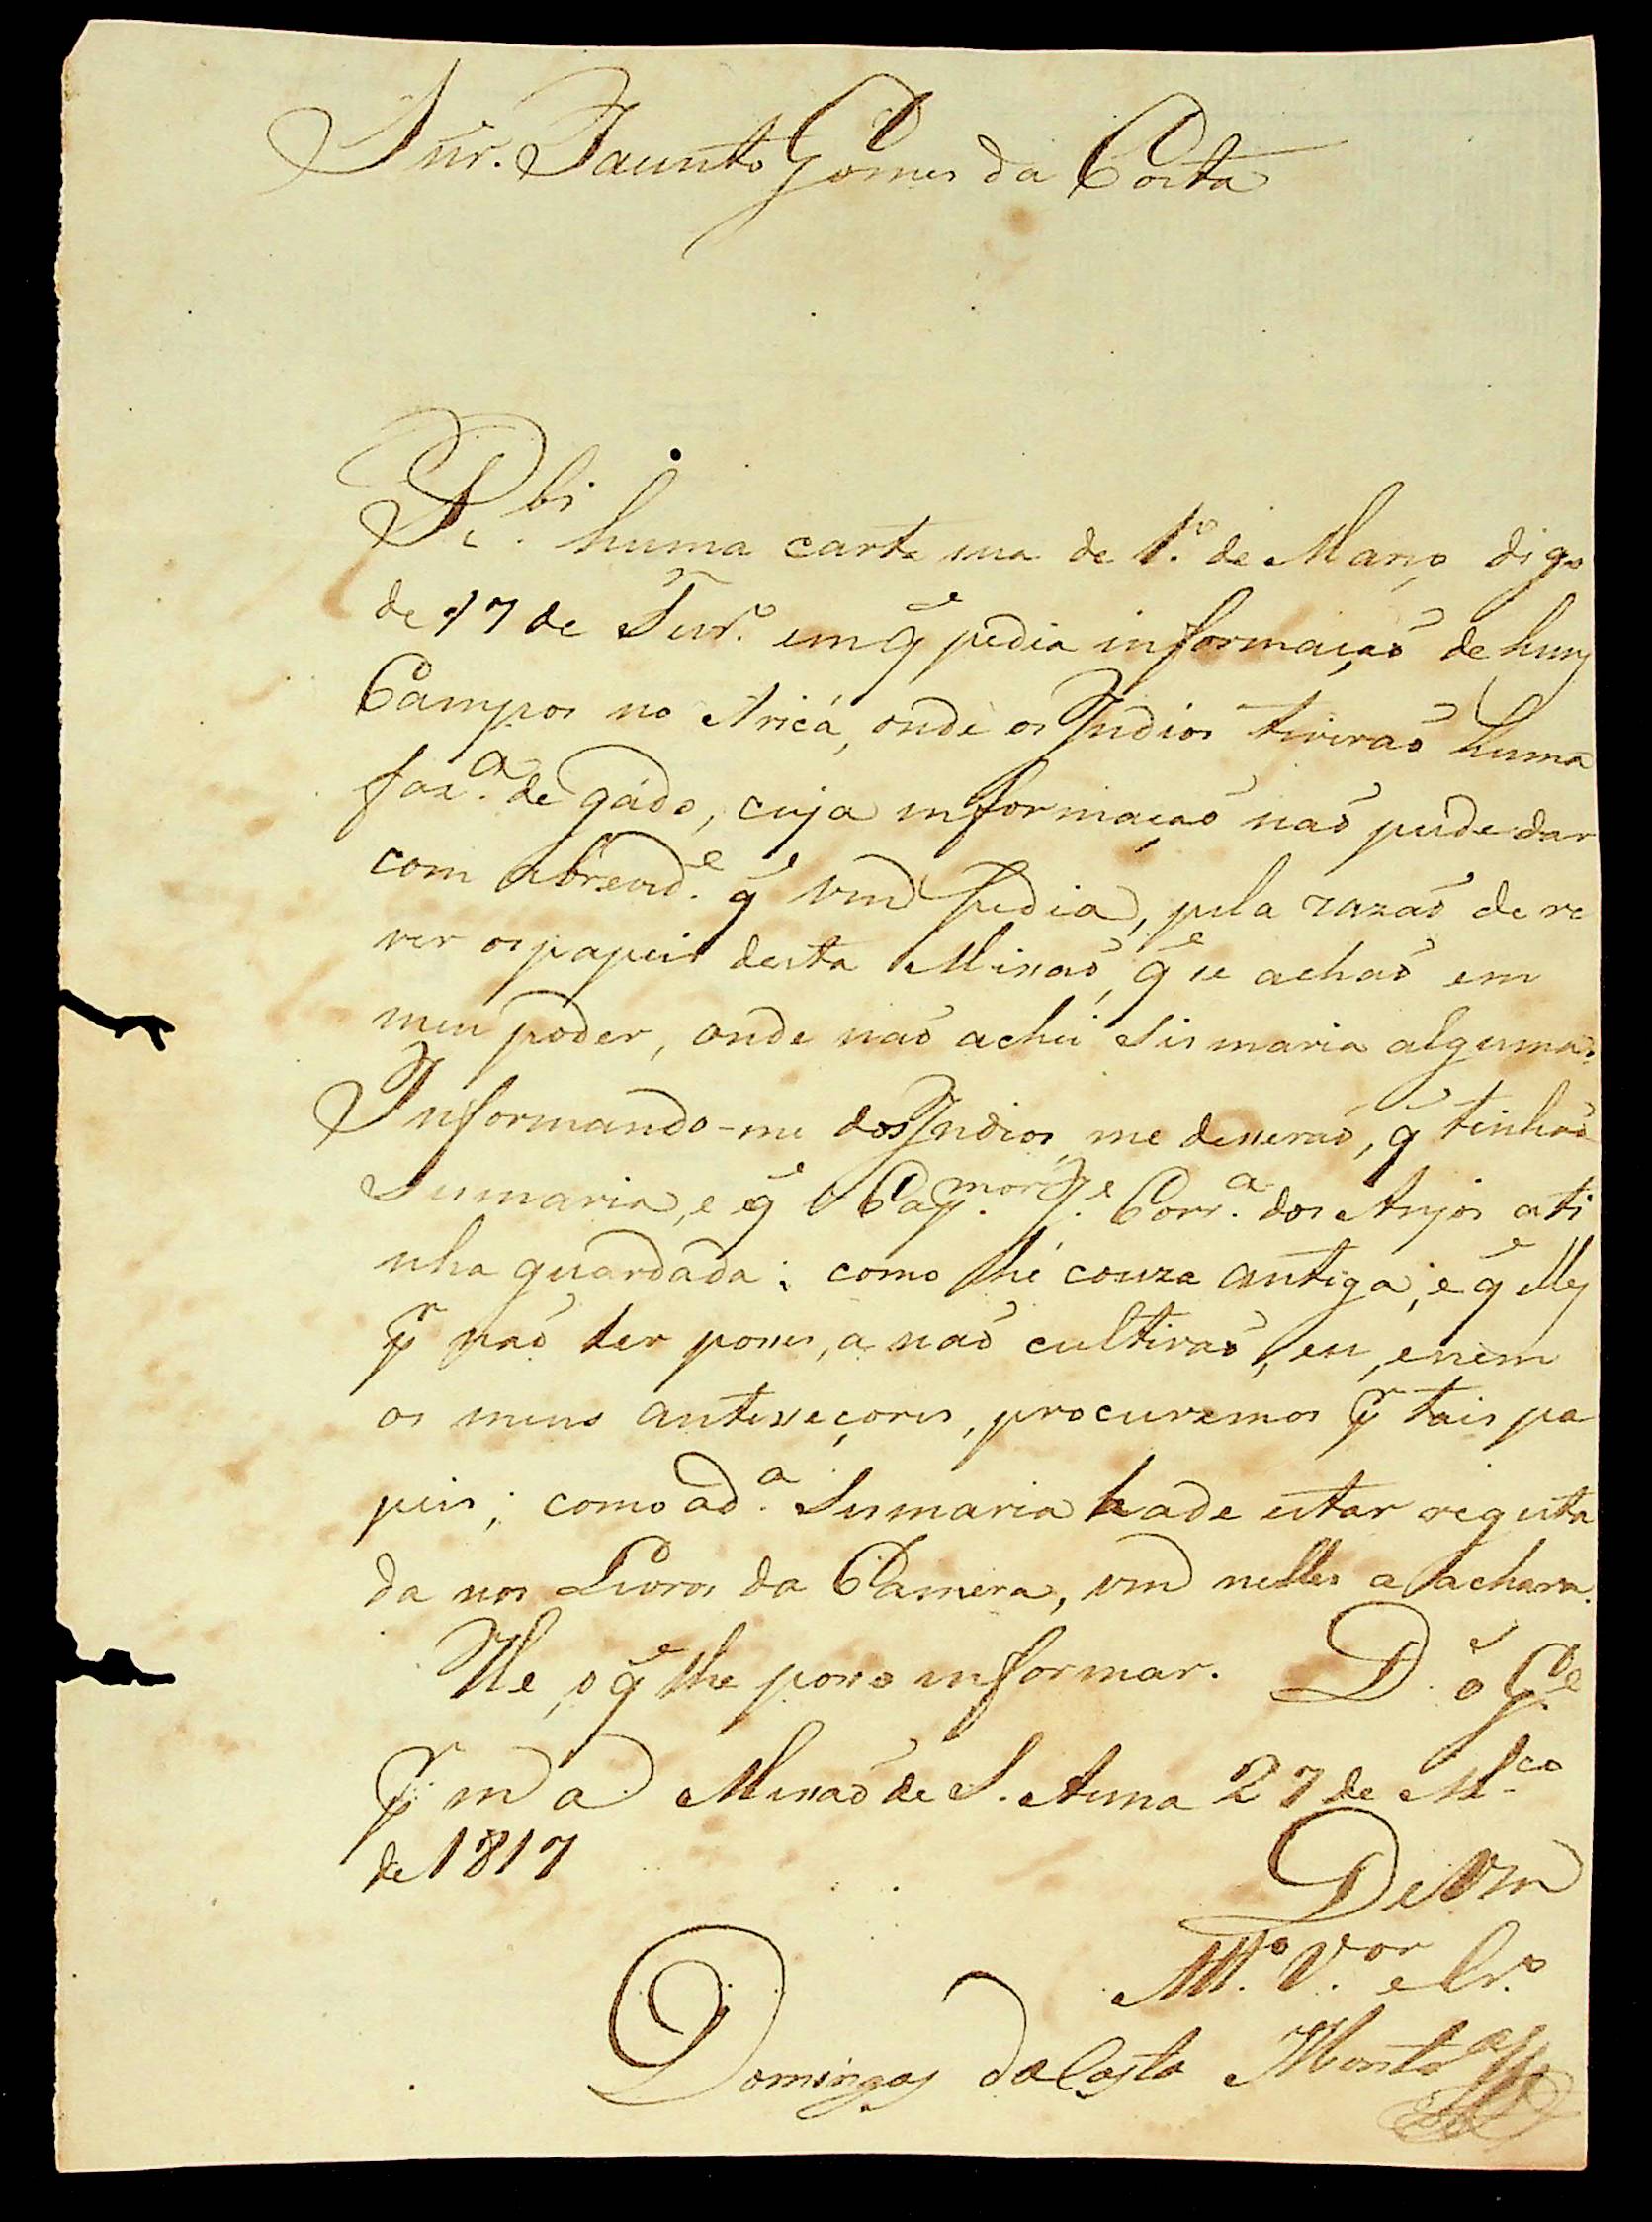 Snr. Jacinto Gomes da Costa
R.bi huma carta sua de 1.º de Março digo
de 17 de Fevr.º em q̃ pedia informação de huns
Campos no Aricá, onde os Indios tiverão huma
faz.ª de gádo, cuja informação não pude dar
com abrevid.e q̃ vm pedia, pela razão de re
ver os papeis desta Missaõ, q̃ se achaõ em
meu poder, onde naõ achei Sismaria alguma.
Informando-me dos Indios, me disseraõ, q̃ tinhaõ
Sismaria, e q̃ o Cap.mor J.e Corr.a dos Anjos a ti
nha guardada; como he couza antiga, e q̃ elles
pr naõ ter posses, a naõ cultivaõ, eu, e nem
os meus antesseçores, procuremos pr tais pa
peis; como a d.a Sismaria hade estar regista
da nos Livros da Camera, vm nelles a achara.
He, o q̃ lhe posso informar. D.s G.e
pr m a Missaõ de S. Anna 27 de M.ço
de 1817
De Vm
Mt.º V.or e Cr.º
Domingos da Costa Montr.º